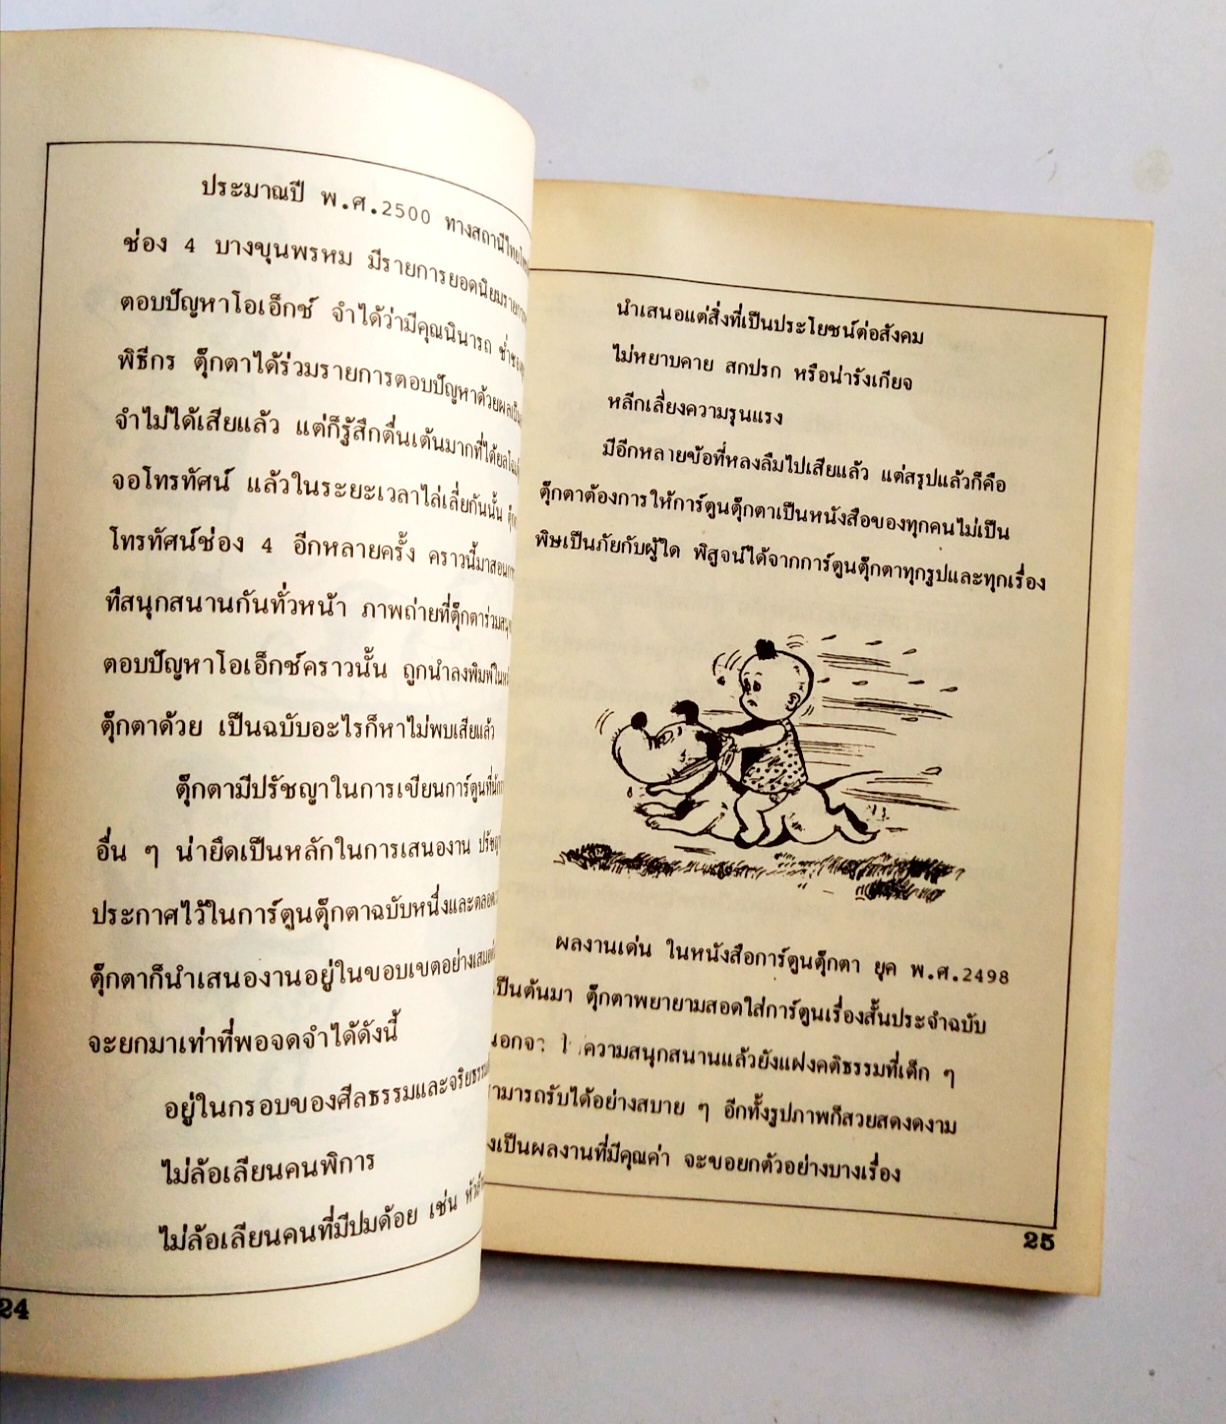 ประมาณปี พ.ศ.2500 ทางสถานีไทย
ช่อง 4 บางขุนพรหม มีรายการยอดนิยม
ตอบปัญหาโอเอ็กซ์ จำได้ว่ามีคุณนินารถ
พิธีกร ตุ๊กตาได้ร่วมรายการตอบปัญหาด้วย
จำไม่ได้เสียแล้ว แต่ก็รู้สึกตื่นเต้นมากที่ได้
จอโทรทัศน์ แล้วในระยะเวลาไล่เลี่ยกันนั้น
โทรทัศน์ช่อง 4 อีกหลายครั้ง คราวนี้มา
ที่สนุกสนานกันทั่วหน้า ภาพถ่ายที่ตุ๊กตาร่วม
ตอบปัญหาโอเอ็กซ์คราวนั้น ถูกนำลงพิมพ์ใน
ตุ๊กตาด้วย เป็นฉบับอะไรก็หาไม่พบเสียแล้ว
ตุ๊กตามีปรัชญาในการเขียนการ์ตูนที่
อื่น ๆ น่ายึดเป็นหลักในการเสนองาน
ประกาศไว้ในการ์ตูนตุ๊กตาฉบับหนึ่งและ
ตุ๊กตาก็นำเสนองานอยู่ในขอบเขตอย่าง
จะยกมาเท่าที่พอจดจำได้ดังนี้
อยู่ในกรอบของศีลธรรมและ
ไม่ล้อเลียนคนพิการ
ไม่ล้อเลียนคนที่มีปมด้อย เช่น
24
นำเสนอแต่สิ่งที่เป็นประโยชน์ต่อสังคม
ไม่หยาบคาย สกปรก หรือน่ารังเกียจ
หลีกเลี่ยงความรุนแรง
มีอีกหลายข้อที่หลงลืมไปเสียแล้ว แต่สรุปแล้วก็คือ
ตุ๊กตาต้องการให้การ์ตูนตุ๊กตาเป็นหนังสือของทุกคนไม่เป็น
พิษเป็นภัยกับผู้ใด พิสูจน์ได้จากการ์ตูนตุ๊กตาทุกรูปและทุกเรื่อง
ผลงานเด่น ในหนังสือการ์ตูนตุ๊กตา ยุค พ.ศ.2498
เป็นต้นมา ตุ๊กตาพยายามสอดใส่การ์ตูนเรื่องสั้นประจำฉบับ
ความสนุกสนานแล้วยังแฝงคติธรรมที่เด็ก ๆ
ามารถรับได้อย่างสบาย ๆ อีกทั้งรูปภาพก็สวยสดงดงาม
งเป็นผลงานที่มีคุณค่า จะขอยกตัวอย่างบางเรื่อง
25